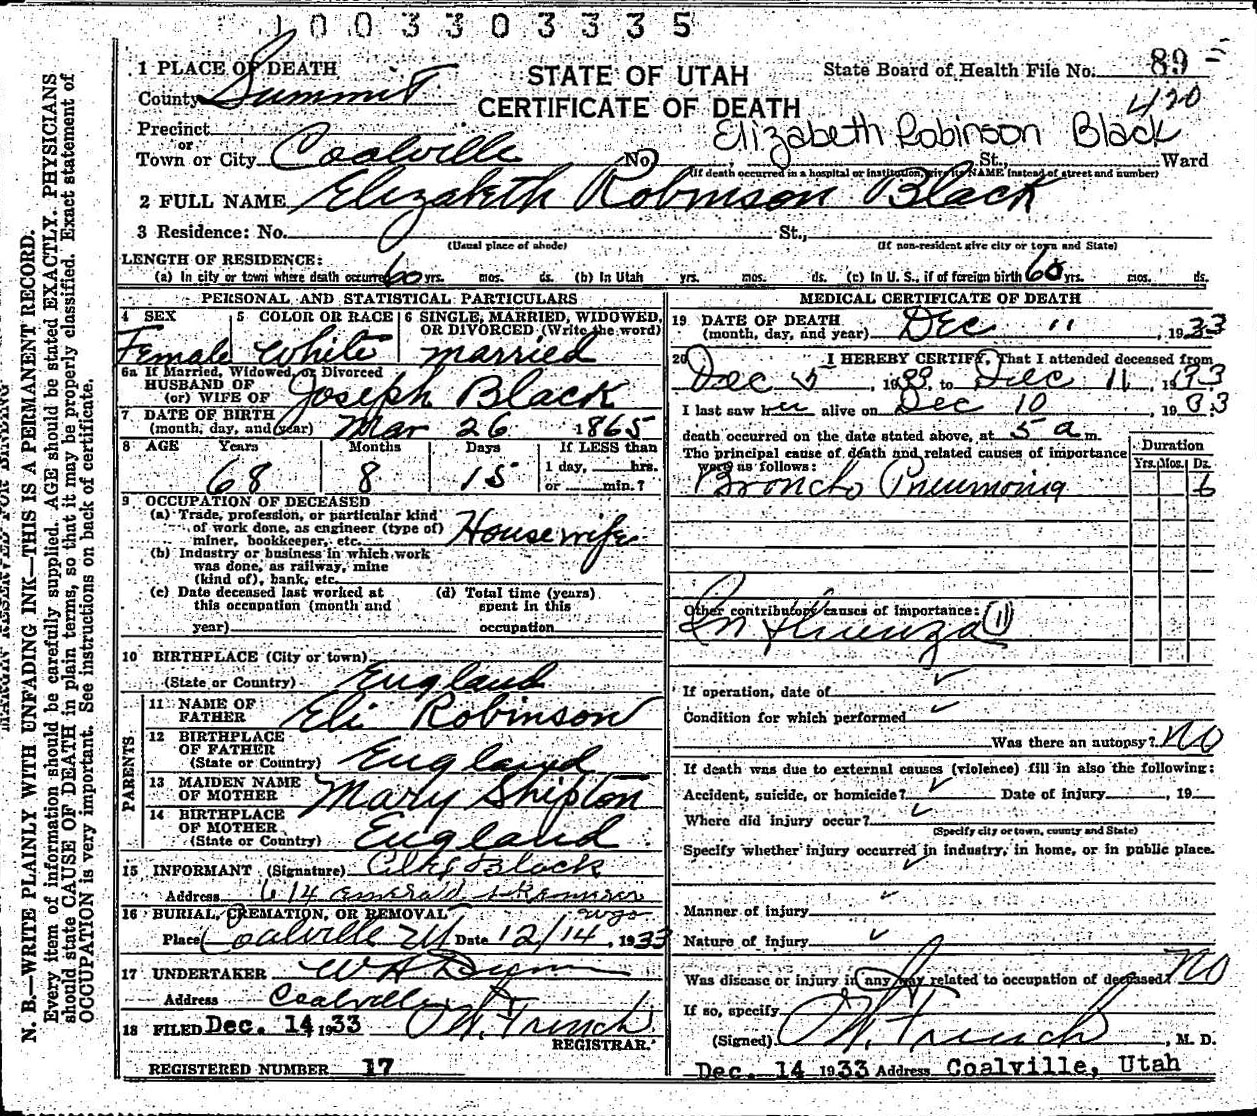 1003303335
1 PLACE OF DEATH
STATE OF UTAH
State Board of Health File No. 89
County Summit
CERTIFICATE OF DEATH
420
Precinct
Elizabeth Robinson Black
or
Town or City Coalville No. St., Ward
(If death occurred in a hospital or institution, give its NAME instead of street and number)
2 FULL NAME Elizabeth Robinson Black
3 Residence: No. St.,
(Usual place of abode) (If non-resident give city or town and State)
LENGTH OF RESIDENCE:
(a) In city or town where death occurred 60 yrs. mos. ds. (b) In Utah yrs. mos. ds. (c) In U. S., if of foreign birth 60 yrs. mos. ds.
PERSONAL AND STATISTICAL PARTICULARS
4 SEX 5 COLOR OR RACE 6 SINGLE, MARRIED, WIDOWED,
OR DIVORCED (Write the word)
Female White married
6a If Married, Widowed, or Divorced
HUSBAND OF
(or) WIFE OF Joseph Black
7 DATE OF BIRTH
(month, day, and year) Mar 26 1865
8 AGE Years Months Days If LESS than
1 day, hrs.
68 8 15 or min.?
9 OCCUPATION OF DECEASED
(a) Trade, profession, or particular kind
of work done, as engineer (type of)
miner, bookkeeper, etc. Housewife
(b) Industry or business in which work
was done, as railway, mine
(kind of), bank, etc.
(c) Date deceased last worked at
this occupation (month and
year)
(d) Total time (years)
spent in this
occupation
10 BIRTHPLACE (City or town)
(State or Country) England
PARENTS
11 NAME OF
FATHER Eli Robinson
12 BIRTHPLACE
OF FATHER
(State or Country) England
13 MAIDEN NAME
OF MOTHER Mary Shipton
14 BIRTHPLACE
OF MOTHER
(State or Country) England
15 INFORMANT (Signature) Black
Address 614 Emerald Kemmerer
Wyo
16 BURIAL, CREMATION, OR REMOVAL
Place Coalville Ut Date 12/14, 1933
17 UNDERTAKER
Address Coalville
18 FILED Dec. 14 1933 Trench
REGISTRAR.
REGISTERED NUMBER 17
MEDICAL CERTIFICATE OF DEATH
19 DATE OF DEATH
(month, day, and year) Dec 11 1933
20 I HEREBY CERTIFY, That I attended deceased from
Dec 5, 1933, to Dec 11, 1933
I last saw her alive on Dec 10, 1933
death occurred on the date stated above, at 5 a m.
The principal cause of death and related causes of importance
were as follows:
Duration
Yrs. Mos. Ds.
Broncho Pneumonia 6
Other contributory causes of importance: 11
Influenza
If operation, date of
Condition for which performed
Was there an autopsy? No
If death was due to external causes (violence) fill in also the following:
Accident, suicide, or homicide? Date of injury , 19
Where did injury occur?
(Specify city or town, county and State)
Specify whether injury occurred in industry, in home, or in public place.
Manner of injury
Nature of injury
Was disease or injury in any way related to occupation of deceased? No
If so, specify
(Signed) Trench, M. D.
Dec. 14 1933 Address Coalville, Utah
N. B.—WRITE PLAINLY WITH UNFADING INK—THIS IS A PERMANENT RECORD.
Every item of information should be carefully supplied. AGE should be stated EXACTLY. PHYSICIANS
should state CAUSE OF DEATH in plain terms, so that it may be properly classified. Exact statement of
OCCUPATION is very important. See instructions on back of certificate.